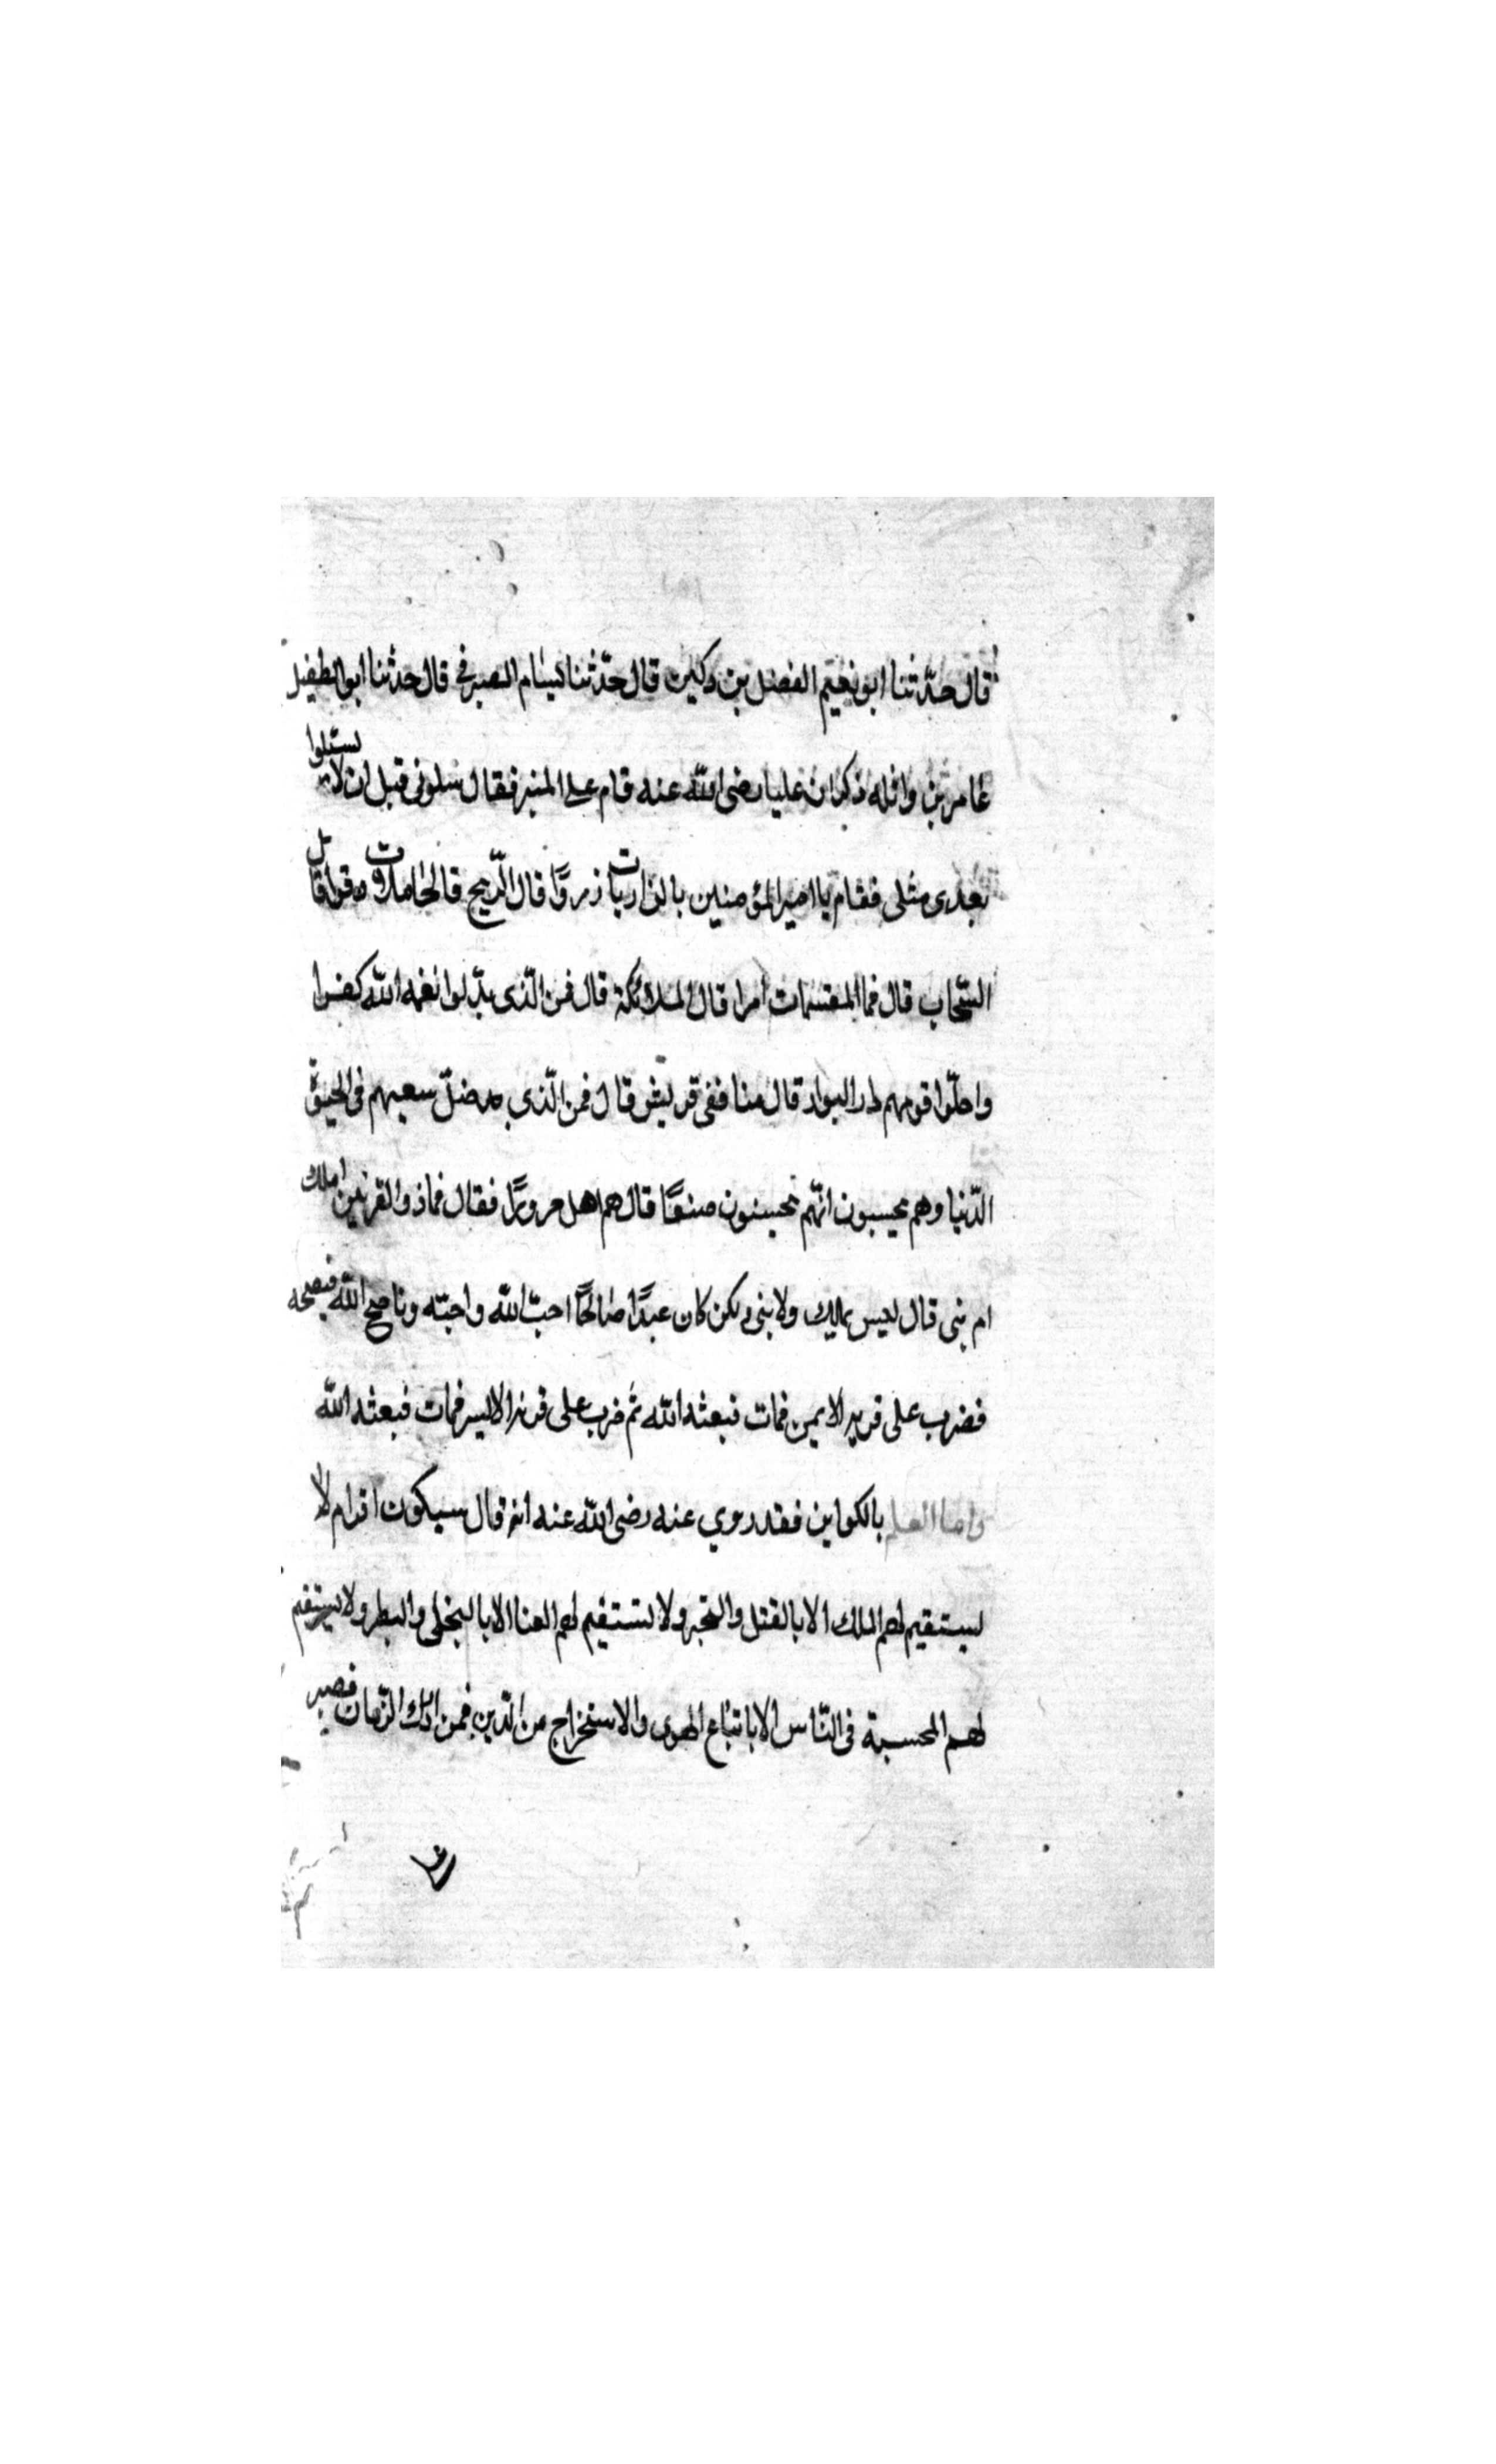 قال حدّثنا ابو نعيم الفضل بن دكين قال حدّثنا بسام الصيرفي قال حدثنا ابو الطفيل
عامر بن واثله ذكر ان عليا رضى الله عنه قام على المنبر فقال سلونى قبل ان لا تسئلوا
بعدى مثلى فقام يا امير المؤمنين بالذاريات ذروًا قال الرّيح قالحاملات وقرا قال
السّحاب قال فما المقسمات امرا قال الملائكة قال فمن الّذى بدّلوا نعمه الله كفرا
واحلّوا قومهم دار البوار قال منافقى قريش قال فمن الّذي ضلّ سعيهم فى الحيوة
الدّنيا وهم يحسبون انّهم يحسنون صنعًا قال هم اهل حرورًا فقال فما ذو القرنين املك
ام نبى قال ليس بملك ولا بنى ولكن كان عبدًا صالحًا احبّ الله واحبّه وناصح الله فنصحه
فضرب على قرنه الايمن فمات فبعثه الله ثم ضرب على قرنه الايسر فمات فبعثه الله
واما العلم بالكواين فقد روي عنه رضى الله عنه انه قال سيكون اقوام لا
يستقيم لهم الملك الا بالقتل والتجبر ولا يستقيم لهم الغنا الا بالبخل والبطر ولا يستقيم
لهم المحسبة فى النّاس الا باتباع الهوى والاستخراج من الدّين فمن ادرك الزّمان فصبر